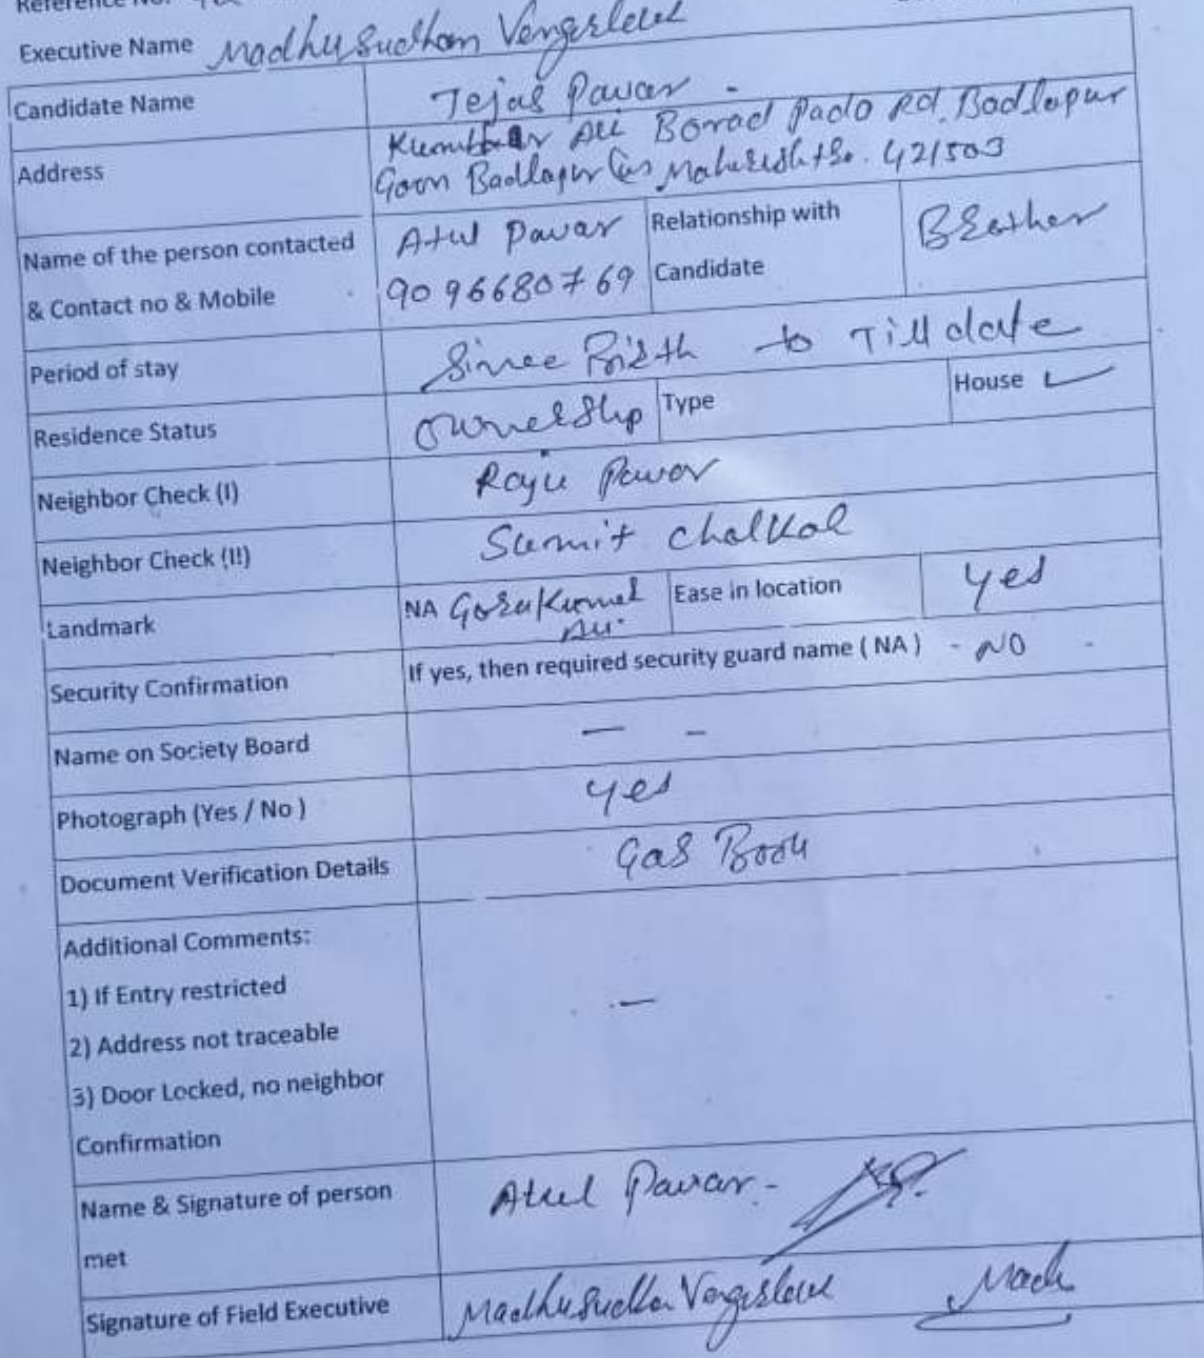 Reference No.
Executive Name Madhusudhan Vengurlekar
Candidate Name Tejas Pawar -
Address Kumbhar Ali Borad Pado Rd, Badlapur
Gaon Badlapur Maharashtra. 421503
Name of the person contacted Atul Pawar Relationship with Brother
& Contact no & Mobile 9096680769 Candidate
Period of stay Since Birth to Till date
Residence Status Ownership Type House ✓
Neighbor Check (I) Raju Pawar
Neighbor Check (II) Sumit Chalkal
Landmark NA Ease in location Yes
Ali.
Security Confirmation If yes, then required security guard name ( NA ) - NO -
Name on Society Board — -
Photograph (Yes / No ) Yes
Document Verification Details Gas Book
Additional Comments:
1) If Entry restricted
2) Address not traceable —
3) Door Locked, no neighbor
Confirmation
Name & Signature of person Atul Pawar. -
met
Signature of Field Executive Madhusudhan Vengurlekar Madh